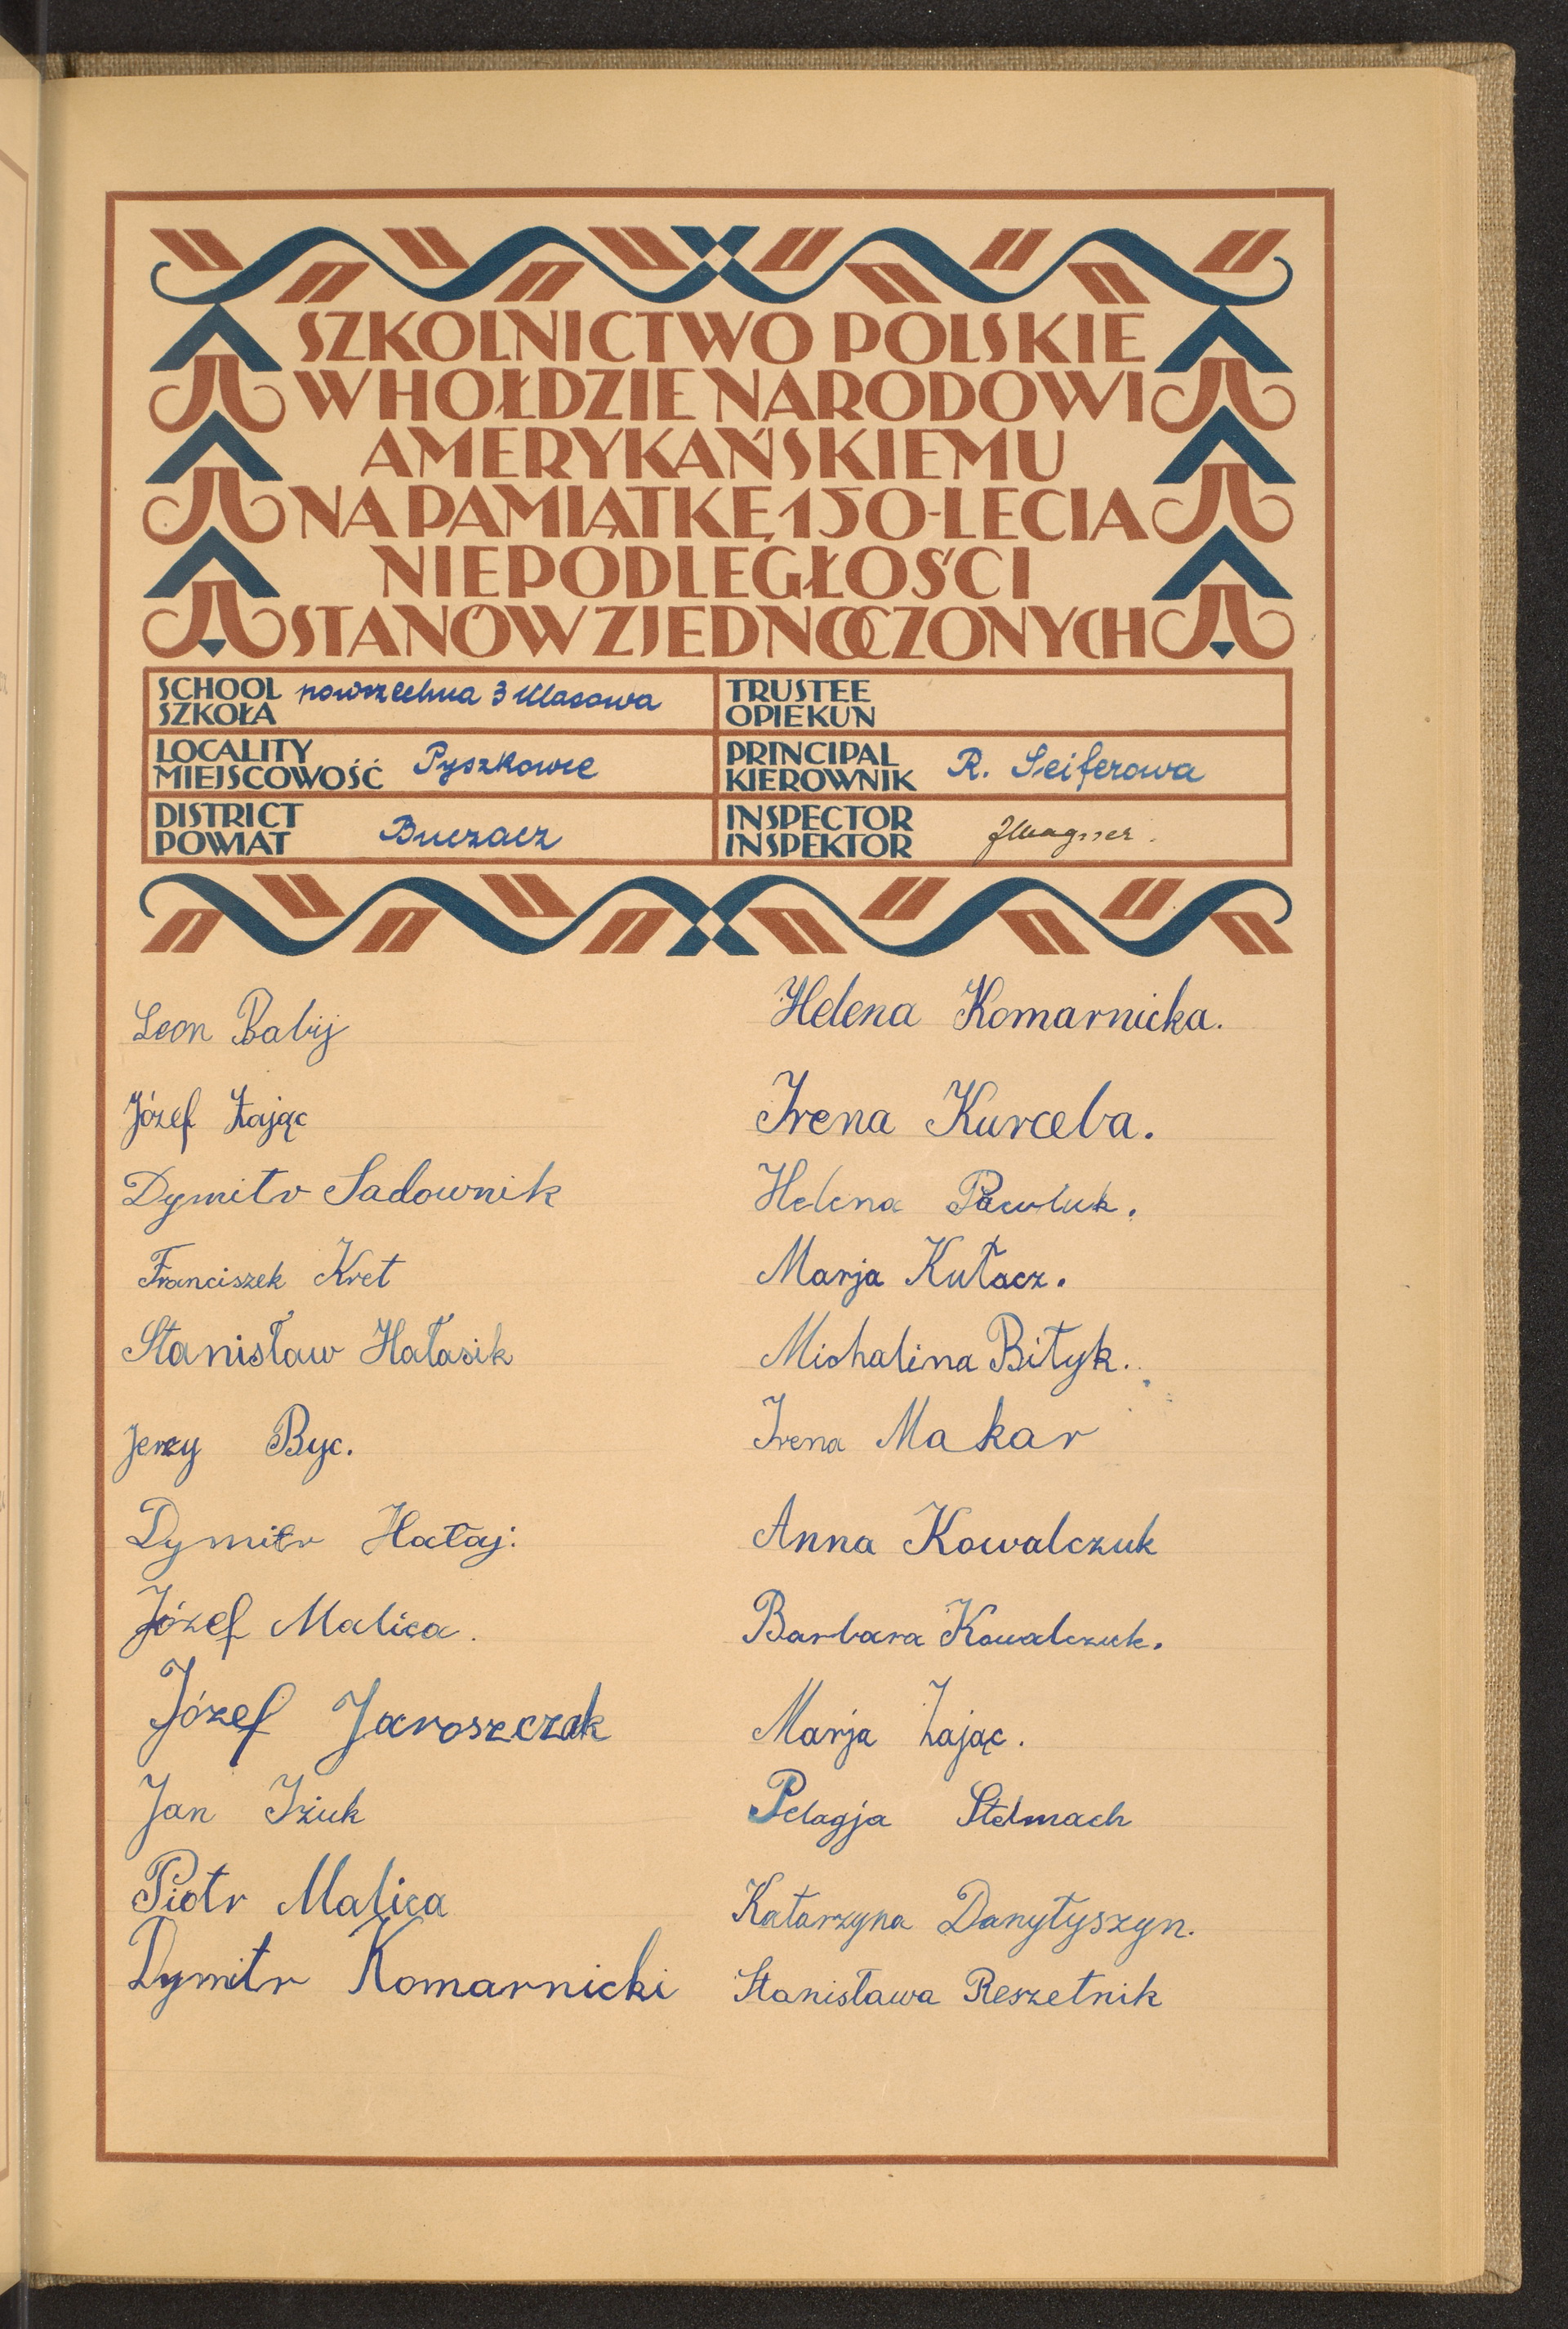 SZKOLNICTWO POLSKIE
W HOŁDZIE NARODOWI
AMERYKAŃSKIEMU
NA PAMIĄTKĘ 150-LECIA
NIEPODLEGŁOŚCI
STANÓW ZJEDNOCZONYCH
SCHOOL
SZKOŁA
powszechna 3 klasowa
TRUSTEE
OPIEKUN
LOCALITY
MIEJSCOWOŚĆ
Pyszkowce
PRINCIPAL
KIEROWNIK
R. Seiferowa
DISTRICT
POWIAT
Buczacz
INSPECTOR
INSPEKTOR
Leon Babij
Józef Zając
Dymitr Sadownik
Franciszek Kret
Stanisław Hałasik
Jerzy Byc.
Dymitr Hałaj.
Józef Malica.
Józef Jaroszczak
Jan Iziuk
Piotr Malica
Dymitr Komarnicki
Helena Komarnicka.
Irena Kurceba.
Helena Pawluk.
Marja Kułacz.
Michalina Biłyk.
Irena Makar
Anna Kowalczuk
Barbara Kowalczuk.
Marja Zając.
Pelagja Stelmach
Katarzyna Danyłyszyn.
Stanisława Reszetnik